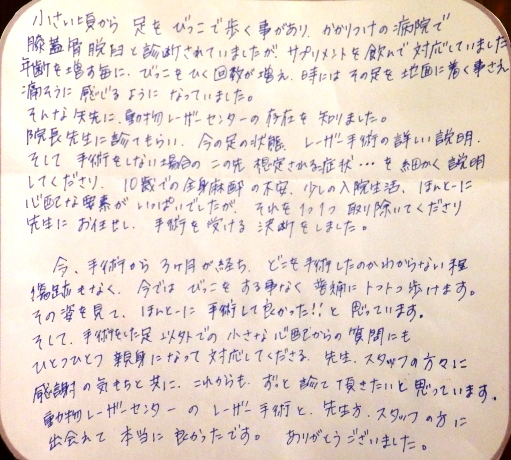 小さい頃から 足を びっこで歩く事があり、かかりつけの病院で
膝蓋骨脱臼と診断されていましたが、サプリメントを飲んで対応していました。
年齢を増す毎に、びっこをひく回数が増え、時には その足を地面に着く事さえ
痛そうに感じるように なっていました。
そんな矢先に、動物レーザーセンターの存在を知りました。
院長先生に診てもらい、今の足の状態、レーザー手術の詳しい説明、
そして 手術をしない場合の この先 想定される症状…を細かく説明
してくださり、10歳での全身麻酔の不安、少しの入院生活、ほんとーに
心配な要素が いっぱいでしたが、それを1つ1つ 取り除いてくださり
先生に お任せし、手術を受ける 決断をしました。
今、手術から 3ヶ月が経ち、どこを手術したのかわからない程
傷跡もなく、今では びっこをする事なく 普通に トコトコ歩けます。
その姿を見て、ほんとーに 手術して良かった!!と 思っています。
そして、手術をした足 以外での 小さな心配からの質問にも
ひとつひとつ 親身になって 対応してくださる、先生、スタッフの方々に
感謝の気もちと共に、これからも、ずっと 診て頂きたいと思っています。
動物レーザーセンターの レーザー手術と、先生方、スタッフの方に
出会えて 本当に 良かったです。 ありがとうございました。